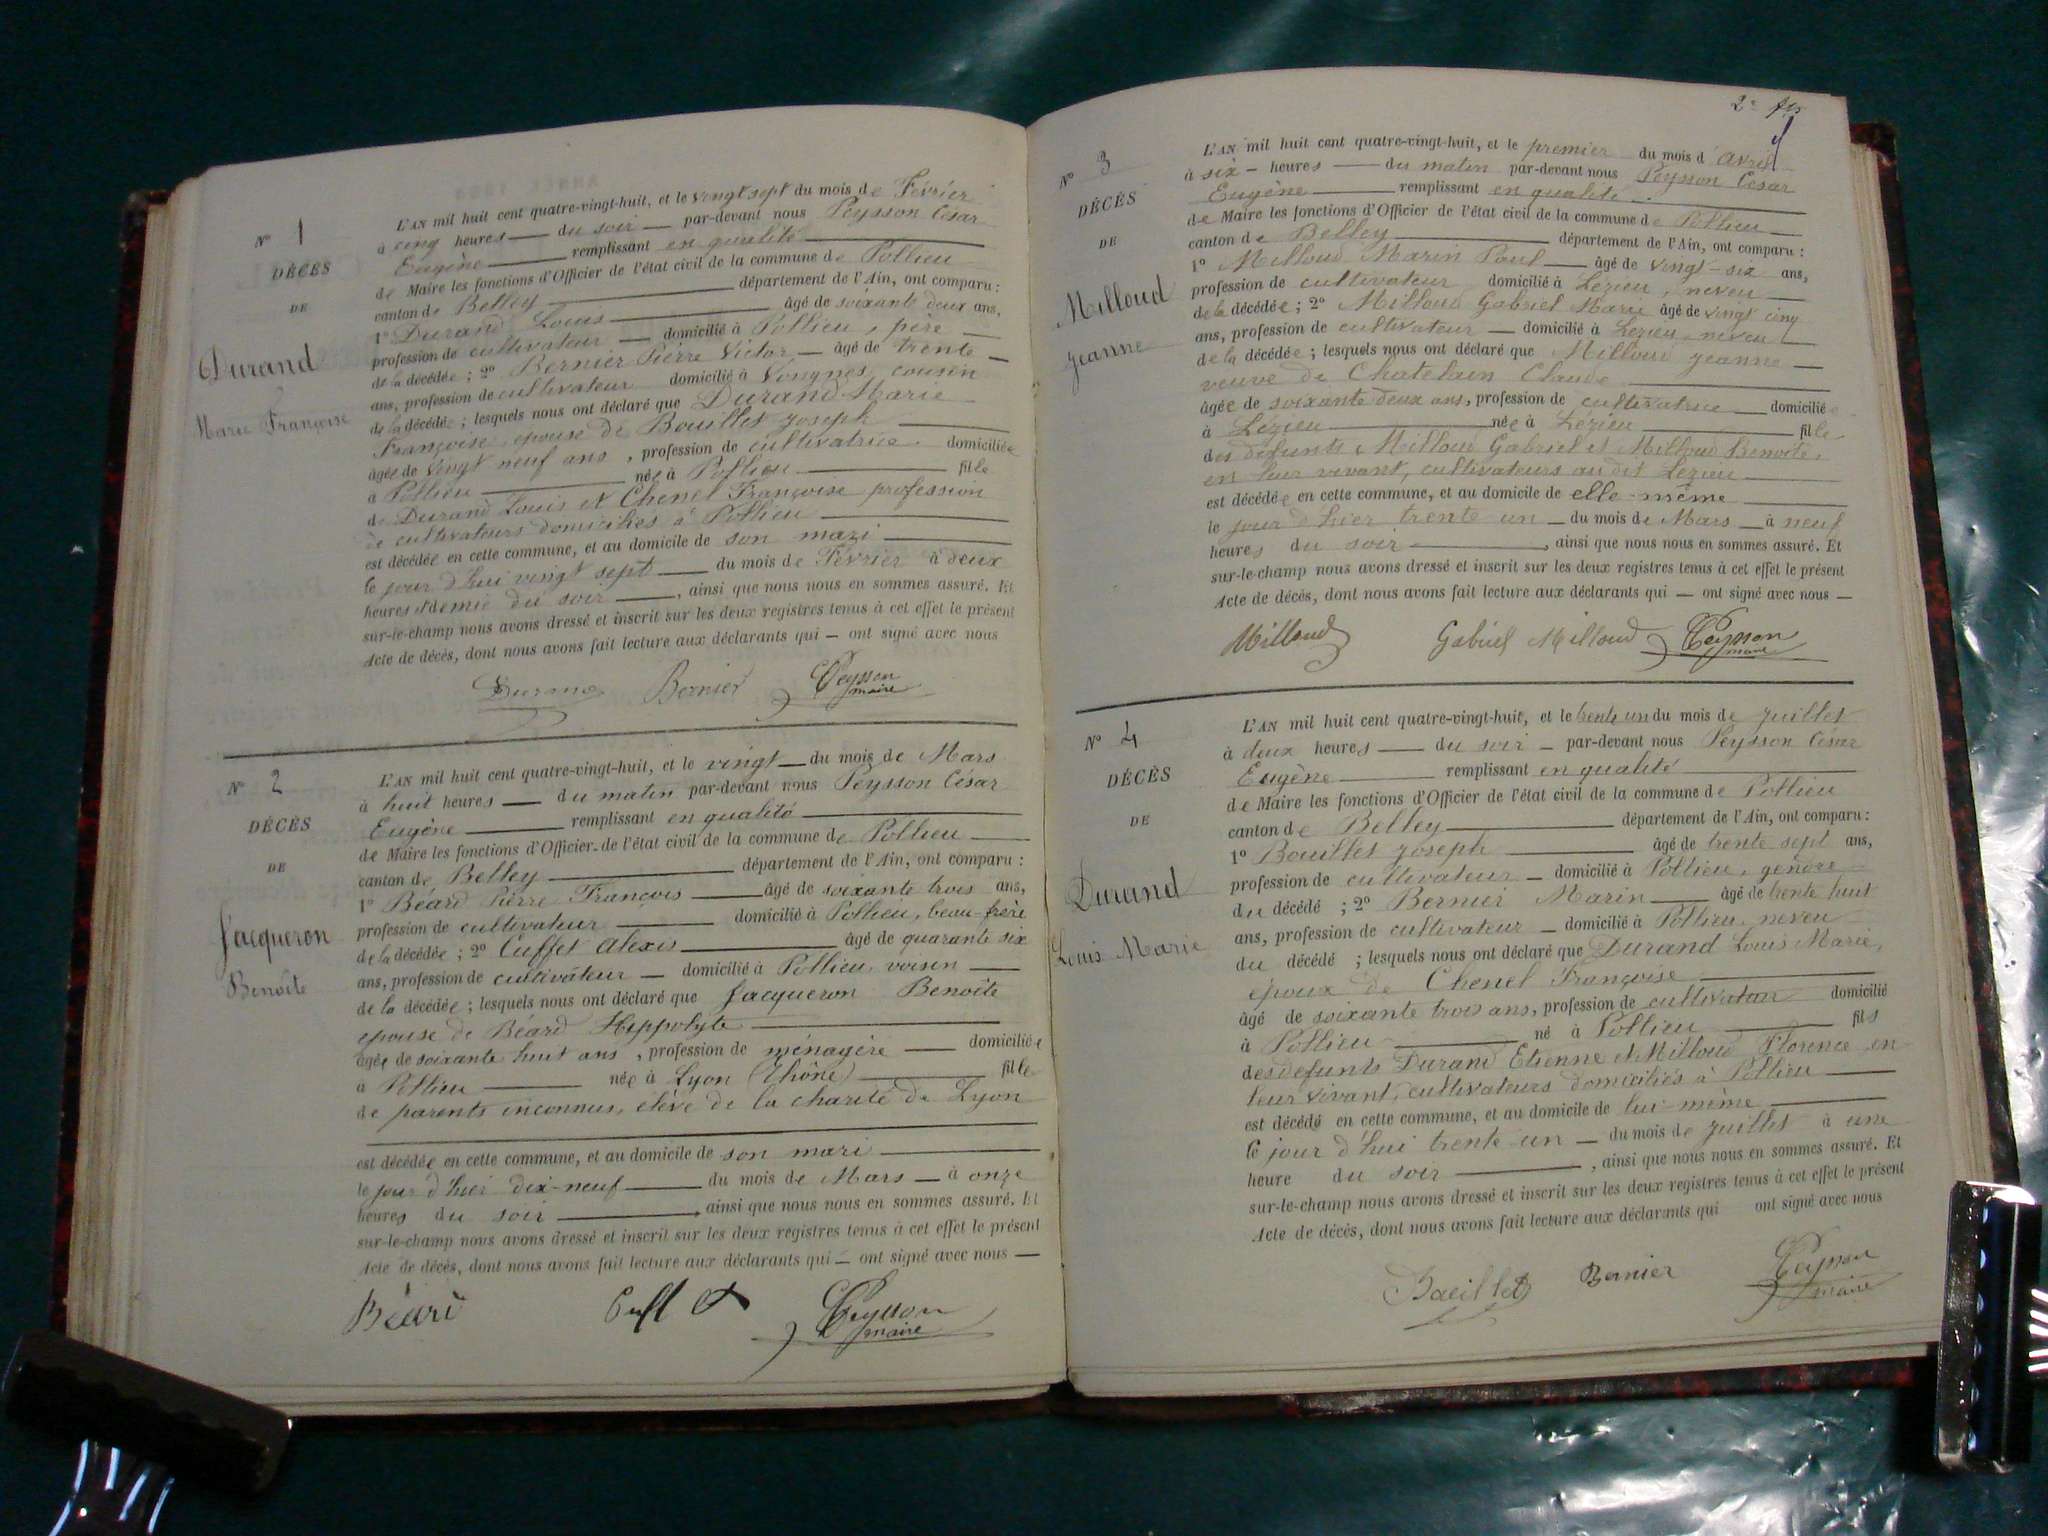 N° 1
DÉCÈS
DE
Durand
Marie Françoise
L'AN mil huit cent quatre-vingt-huit, et le vingt sept du mois de Février
à cinq heures du soir par-devant nous Peysson César
Eugène remplissant en qualité
de Maire les fonctions d'Officier de l'état civil de la commune de Pollieu
canton de Belley département de l'Ain, ont comparu :
1° Durand Louis âgé de soixante deux ans,
profession de cultivateur domicilié à Pollieu, père
de la décédée ; 2° Bernier Pierre Victor, âgé de trente
ans, profession de cultivateur domicilié à Vongnes, cousin
de la décédée ; lesquels nous ont déclaré que Durand Marie
Françoise, épouse de Bouillet Joseph
âgée de vingt neuf ans, profession de cultivatrice domiciliée
à Pollieu née à Pollieu fille
de Durand Louis et Chenel Françoise profession
de cultivateurs domiciliés à Pollieu
est décédée en cette commune, et au domicile de son mari
le jour d'hui vingt sept du mois de Février à deux
heures et demie du soir, ainsi que nous nous en sommes assuré. Et
sur-le-champ nous avons dressé et inscrit sur les deux registres tenus à cet effet le présent
Acte de décès, dont nous avons fait lecture aux déclarants qui — ont signé avec nous
Durand Bernier Peysson
maire
N° 2
DÉCÈS
DE
Jacqueron
Benoîte
L'AN mil huit cent quatre-vingt-huit, et le vingt du mois de Mars
à huit heures du matin par-devant nous Peysson César
Eugène remplissant en qualité
de Maire les fonctions d'Officier de l'état civil de la commune de Pollieu
canton de Belley département de l'Ain, ont comparu :
1° Béard Pierre François âgé de soixante trois ans,
profession de cultivateur domicilié à Pollieu, beau-frère
de la décédée ; 2° Cuffet Alexis âgé de quarante six
ans, profession de cultivateur domicilié à Pollieu, voisin
de la décédée ; lesquels nous ont déclaré que Jacqueron Benoîte
épouse de Béard Hippolyte
âgée de soixante huit ans, profession de ménagère domiciliée
à Pollieu née à Lyon (Rhône) fille
de parents inconnus, élève de la charité de Lyon
est décédée en cette commune, et au domicile de son mari
le jour d'hier dix-neuf du mois de Mars à onze
heures du soir, ainsi que nous nous en sommes assuré. Et
sur-le-champ nous avons dressé et inscrit sur les deux registres tenus à cet effet le présent
Acte de décès, dont nous avons fait lecture aux déclarants qui — ont signé avec nous —
Béard Peysson
maire
N° 3
DÉCÈS
DE
Milloud
Jeanne
L'AN mil huit cent quatre-vingt-huit, et le premier du mois d'avril
à six heures du matin par-devant nous Peysson César
Eugène remplissant en qualité
de Maire les fonctions d'Officier de l'état civil de la commune de Pollieu
canton de Belley département de l'Ain, ont comparu :
1° Milloud Marin Paul âgé de vingt-six ans,
profession de cultivateur domicilié à Lézieu, neveu
de la décédée ; 2° Milloud Gabriel Marie âgé de vingt cinq
ans, profession de cultivateur domicilié à Lézieu, neveu
de la décédée ; lesquels nous ont déclaré que Milloud Jeanne
veuve de Chatelain Claude
âgée de soixante deux ans, profession de cultivatrice domiciliée
à Lézieu née à Lézieu fille
des défunts Milloud Gabriel et Milloud Benoîte,
en leur vivant, cultivateurs au dit Lézieu
est décédée en cette commune, et au domicile de elle-même
le jour d'hier trente un du mois de Mars à neuf
heures du soir, ainsi que nous nous en sommes assuré. Et
sur-le-champ nous avons dressé et inscrit sur les deux registres tenus à cet effet le présent
Acte de décès, dont nous avons fait lecture aux déclarants qui — ont signé avec nous —
Milloud Gabriel Milloud Peysson
maire
N° 4
DÉCÈS
DE
Durand
Louis Marie
L'AN mil huit cent quatre-vingt-huit, et le trente un du mois de Juillet
à deux heures du soir par-devant nous Peysson César
Eugène remplissant en qualité
de Maire les fonctions d'Officier de l'état civil de la commune de Pollieu
canton de Belley département de l'Ain, ont comparu :
1° Bouillet Joseph âgé de trente sept ans,
profession de cultivateur domicilié à Pollieu, gendre
du décédé ; 2° Bernier Marin âgé de trente huit
ans, profession de cultivateur domicilié à Pollieu, neveu
du décédé ; lesquels nous ont déclaré que Durand Louis Marie,
époux de Chenel Françoise
âgé de soixante trois ans, profession de cultivateur domicilié
à Pollieu né à Pollieu fils
des défunts Durand Etienne et Milloud Florence en
leur vivant, cultivateurs domiciliés à Pollieu
est décédé en cette commune, et au domicile de lui-même
le jour d'hui trente un du mois de Juillet à une
heure du soir, ainsi que nous nous en sommes assuré. Et
sur-le-champ nous avons dressé et inscrit sur les deux registres tenus à cet effet le présent
Acte de décès, dont nous avons fait lecture aux déclarants qui ont signé avec nous
Bouillet Bernier Peysson
maire